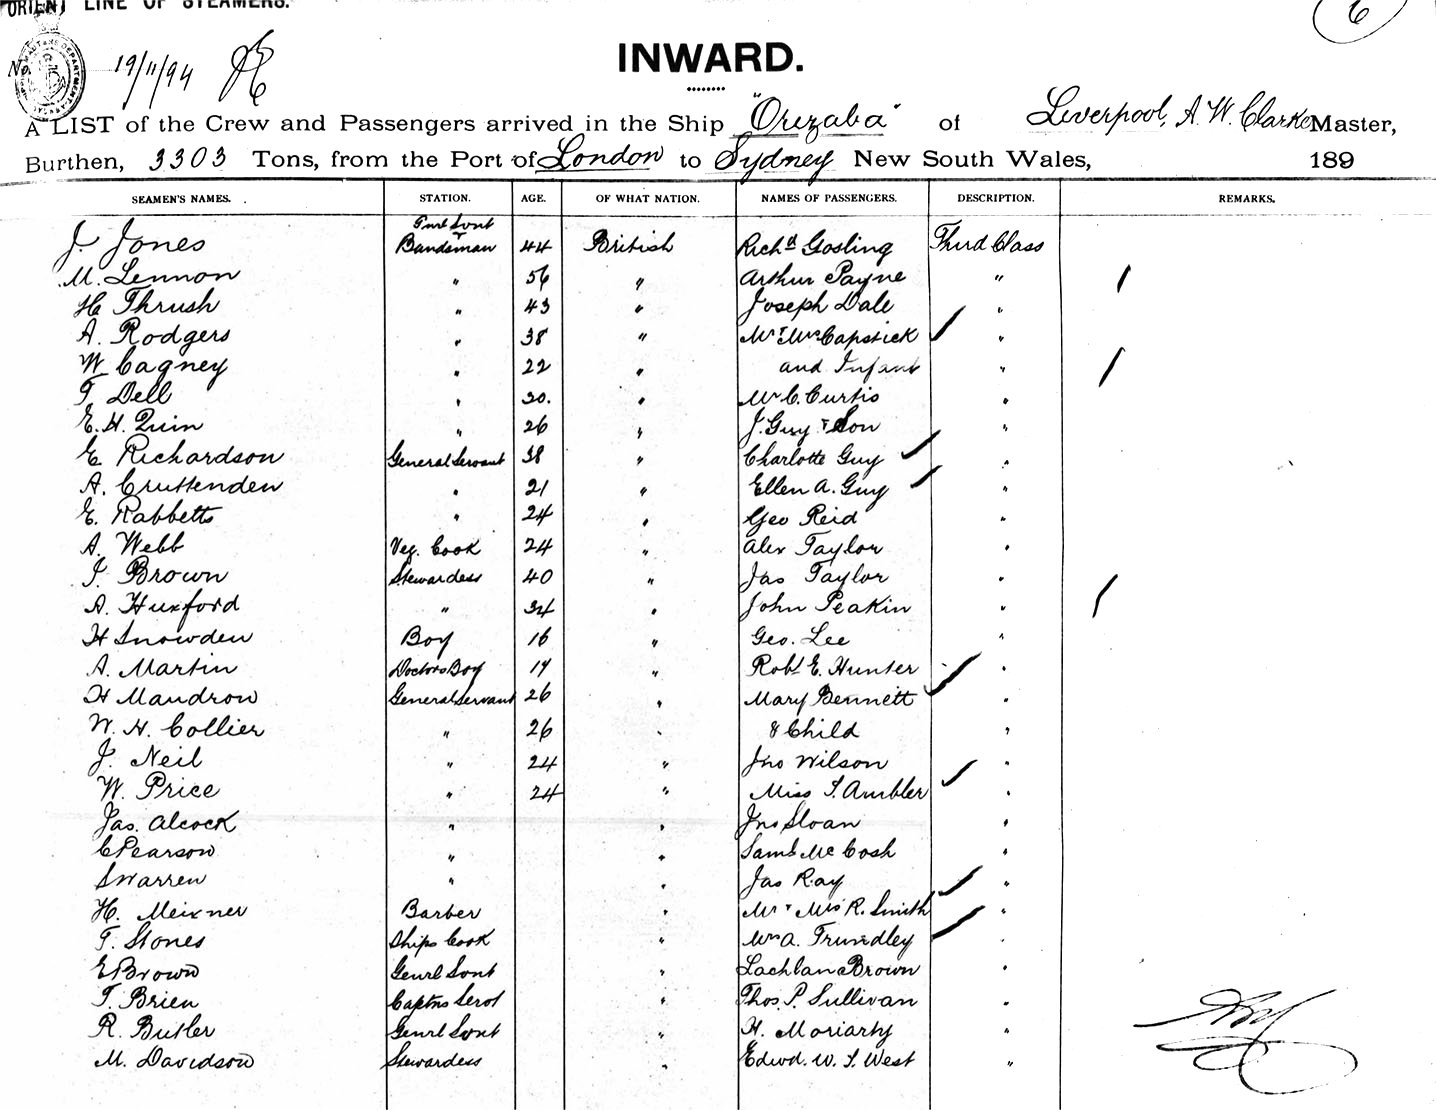 ORIENT LINE OF STEAMERS.
6
19/11/94
INWARD.
A LIST of the Crew and Passengers arrived in the Ship "Orizaba" of Liverpool, A. W. Clarke Master,
Burthen, 3303 Tons, from the Port of London to Sydney New South Wales, 189
SEAMEN'S NAMES. STATION. AGE. OF WHAT NATION. NAMES OF PASSENGERS. DESCRIPTION. REMARKS.
J. Jones Genrl Svnt & Bandsman 44 British Richd Gosling Third Class
M. Lennon " 56 " Arthur Payne "
H Thrush " 43 " Joseph Dale "
A. Rodgers " 38 " Mr & Mrs Capstick "
W Cagney " 22 " and Infant "
T. Dell " 30. " Mr C. Curtis "
E. H. Quin " 26 " J. Guy & Son "
E. Richardson General Servant 38 " Charlotte Guy "
A. Cruttenden " 21 " Ellen A. Guy "
E. Rabbetts " 24 " Geo Reid "
A. Webb Veg. Cook 24 " Alex Taylor "
J. Brown Stewardess 40 " Jas Taylor "
A. Huxford " 34 " John Peakin "
H Snowden Boy 16 " Geo. Lee "
A. Martin Doctors Boy 19 " Robt E. Hunter "
H Maudrow General Servant 26 " Mary Bennett "
W. H. Collier " 26 " & Child "
J. Neil " 24 " Jno Wilson "
W. Price " 24 " Miss T. Ambler "
Jas. Alcock " " Jno Sloan "
C Pearson " " Saml McCosh "
S Warren " " Jas Ray "
H. Meixner Barber " Mr & Mrs R. Smith "
T. Stones Ships Cook " Mrs A. Trundley "
E Brown Genrl Svnt " Lachlan Brown "
T. Brien Captns Servt " Thos. P. Sullivan "
R. Butler Genrl Svnt " H. Moriarty "
M. Davidson Stewardess " Edwd. W. T. West "